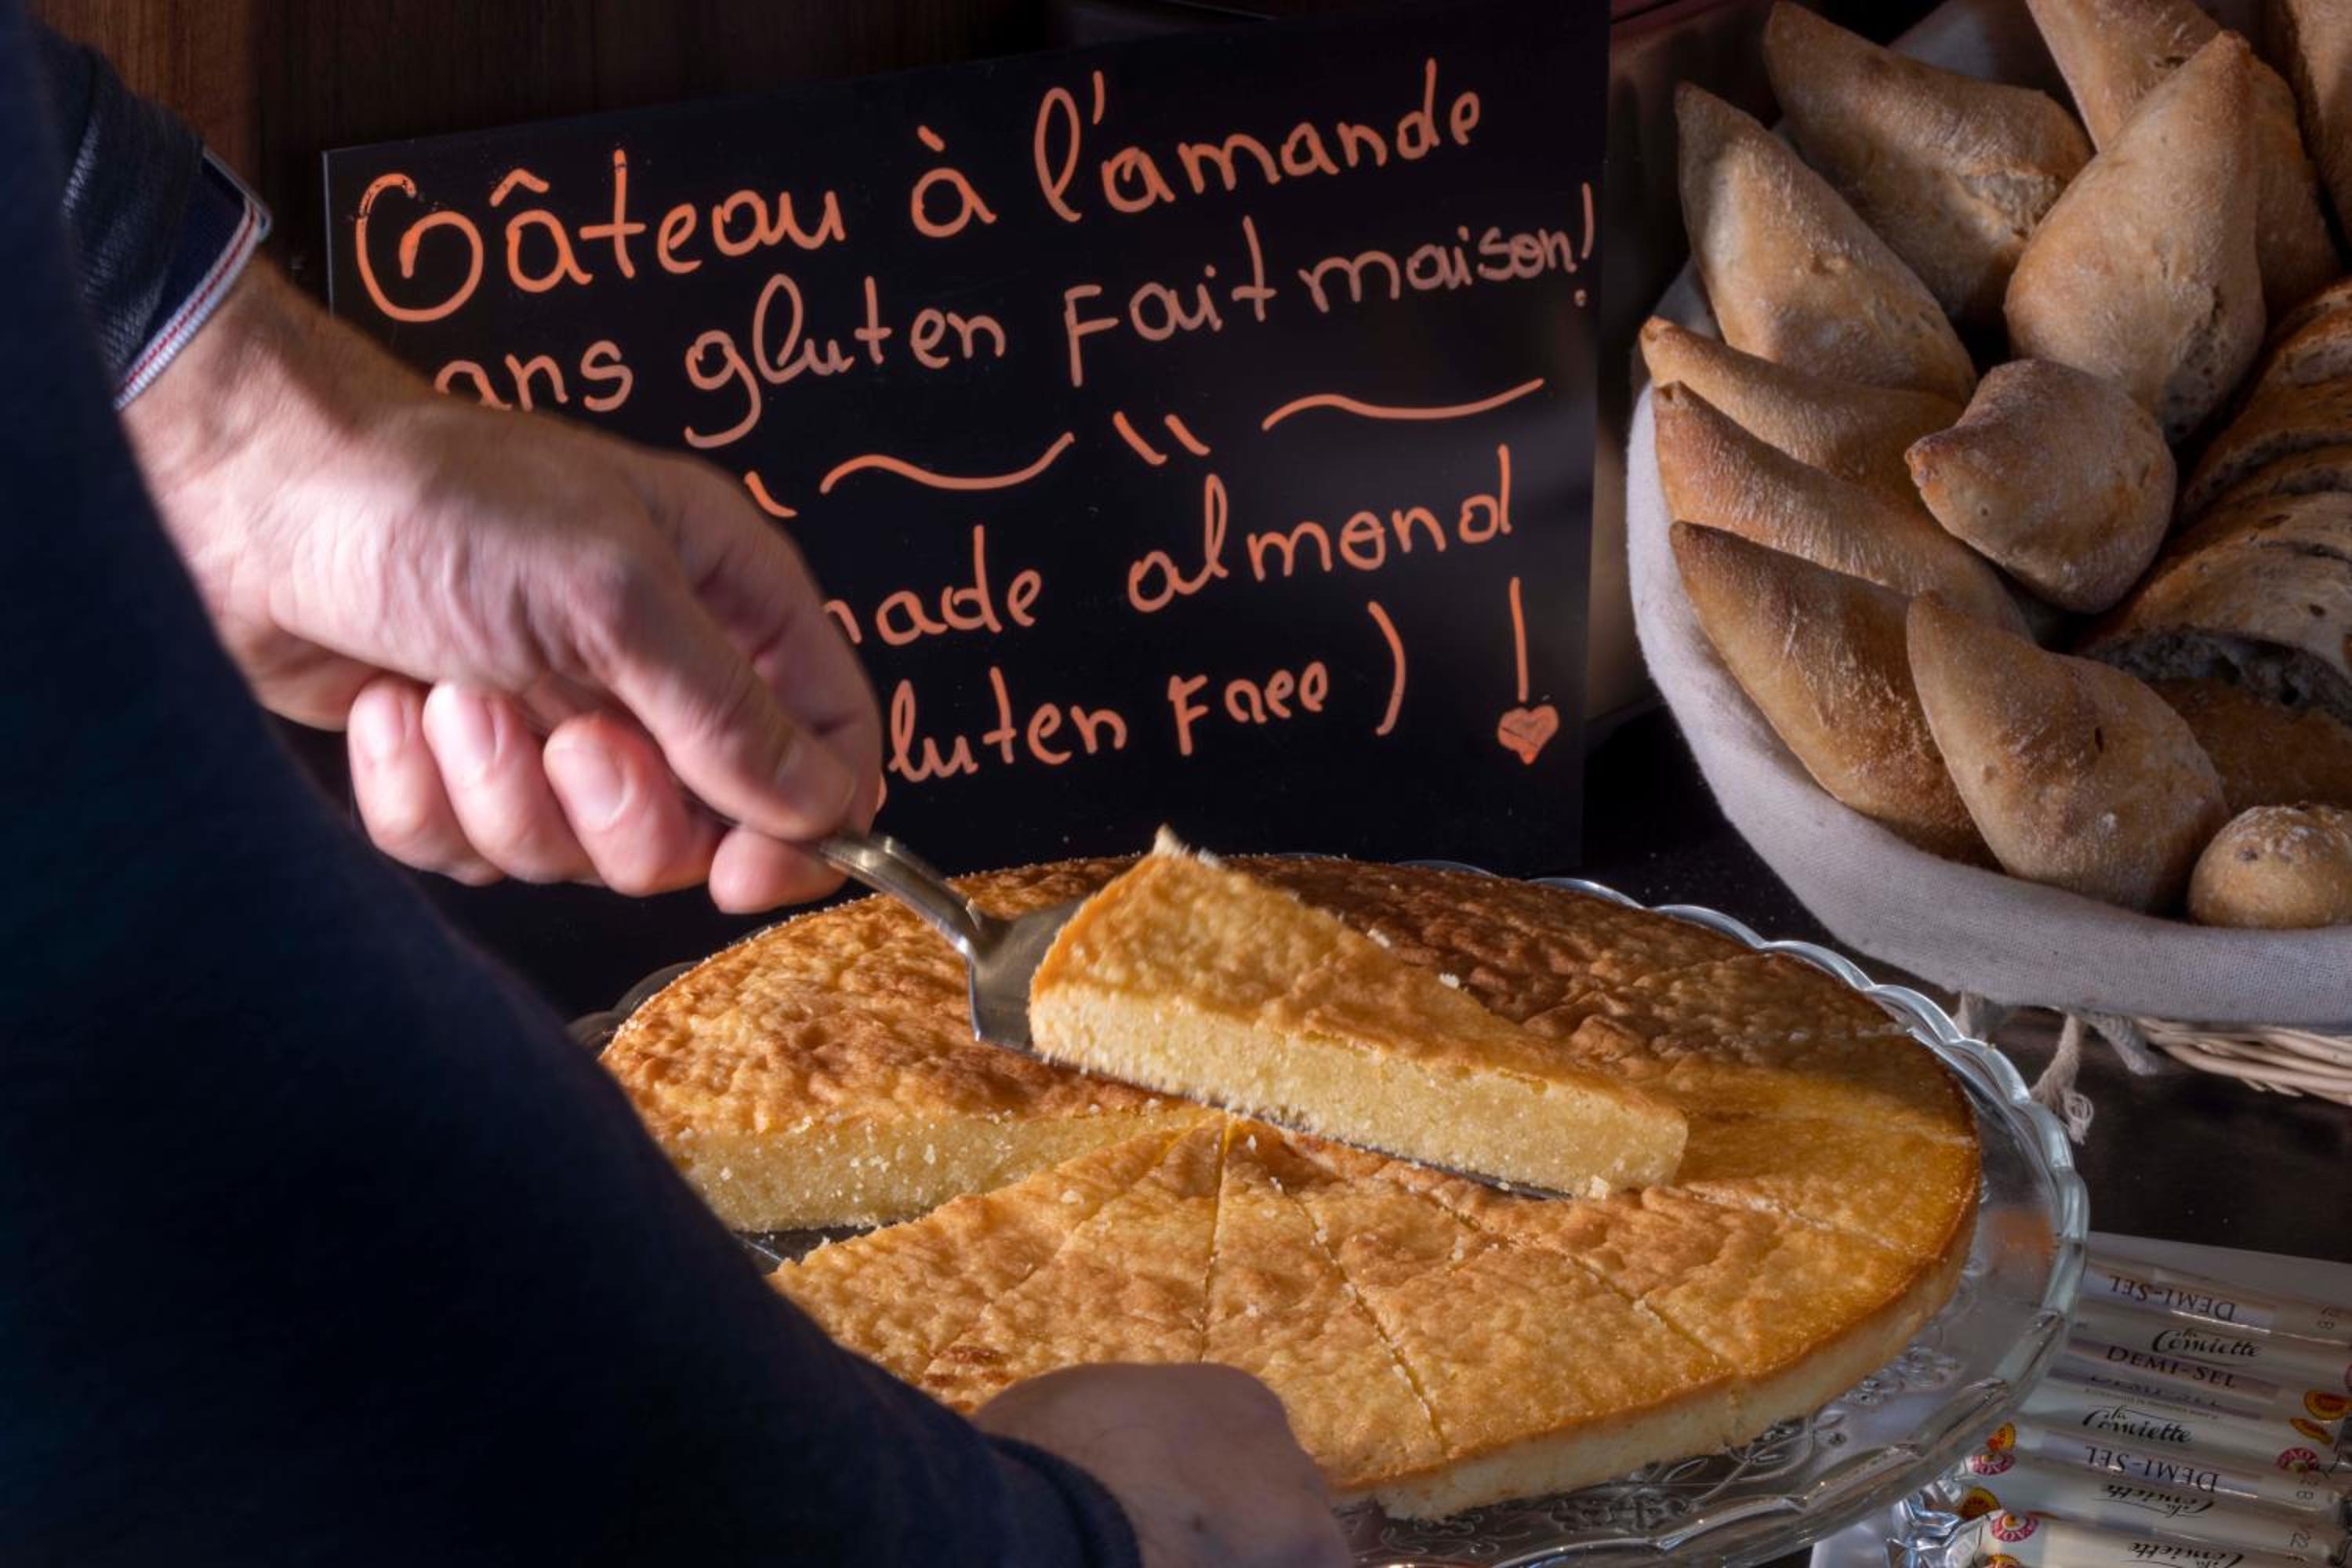 Gâteau à l'amande
ans gluten Fait maison!
nade almond
luten Free) !
DEMI-SEL
la Conviette
DEMI-SEL
la Conviette
DEMI-SEL